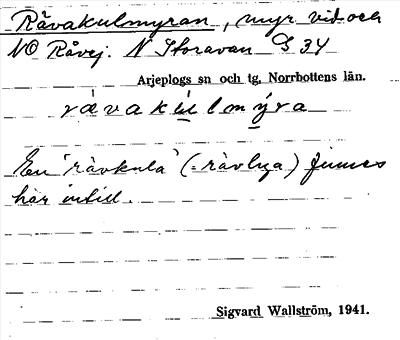 Råvakulmyran, myr vid och
NO Råvej. N Storavan S 34
Arjeplogs sn och tg, Norrbottens län.
råvakulmýra
En 'råvkula' (=råvlya) finnes
här intill.
Sigvard Wallström, 1941.